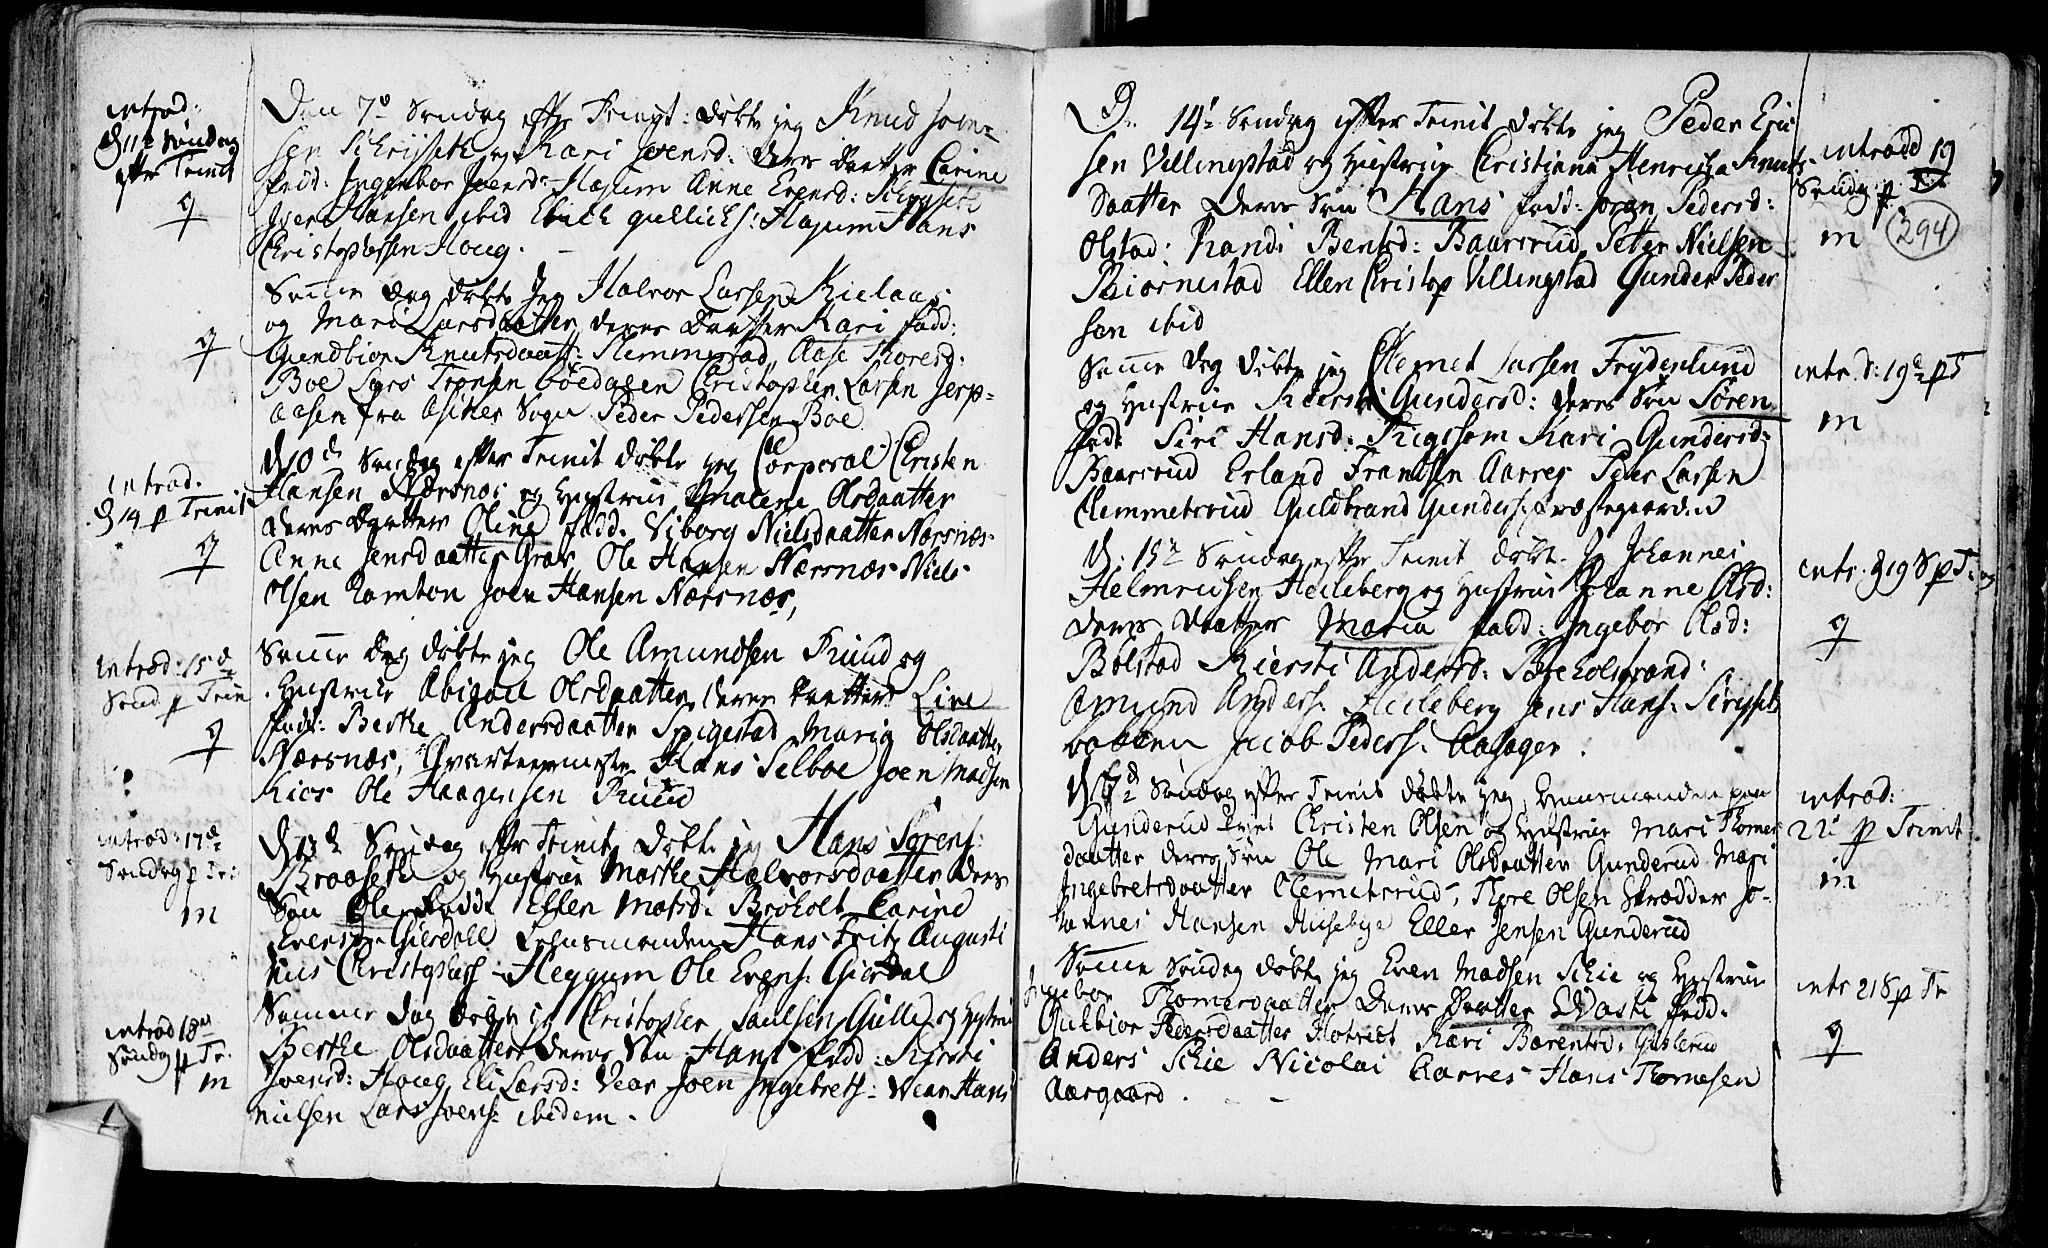 introd:
d 11te Söndag
efter Trinit
Den 7de Söndag efter Trinit: döbte jeg Knud Joen=
sen Schrysseth og Kari Svensd: deres Daatter Carine
fadd: Ingebor Joensd: Hajum Anne Evensd: Schrysseth
Iver Hansen ibid Erich Gullichs: Hajum Hans
Christophersen Houg.
Samme dag döbte jeg Halvor Larsen Kielaas
og Mari Larsdaatter, deres Daatter Kari fadd:
Gundbior Knutsdaatt: Slemmestad, Aase Thoresd:
Boe Lars Tronsen Böedalen Christopher Larsen Jerp=
aasen fra Asker Sogn Peder Pedersen Boe
introd.
d 14 p Trinit
d 10de Söndag efter Trinit döbte jeg Corporal Christen
Hansen Nærsnæs og Hustrue Malene Olsdaatter
deres Daatter Oline fadd: Viborg Nielsdaatter Nærsnæs
Anne Jensdaatter Grav, Ole Hansen Nærsnæs Niels
Olsen Ramton Joen Hansen Nærsnæs,
introd: 15de
Sönd p Trin
Samme dag döbte jeg Ole Amundsen Ruud og
Hustrue Abigael Olsdaatter, deres Daatter Live
fadd: Berthe Andersdaatter Spigestad Maria Olsdaatter
Nærsnæs, Qvarteermester Hans Selboe Joen Madsen
Kios Ole Haagensen Ruud
introd: 17de
Söndag p Tri
m
d 13de Söndag efter Trinit Döbte jeg Hans Sörens:
Braaseth og Hustrue Marthe Halvorsdaatter deres
Sön Ole fadd: Ellen Matsd: Bröholt Carine
Evensd: Gierdall Lehnsmanden Hans Fritz Augusti
nus Christophers: Heggum Ole Evens: Gierdal
introd 18de
Söndag p Tr.
m
Samme dag döbte jeg Christopher Paulsen Gulle og Hustrue
Berthe Olsdaatter deres Sön Hans fadd: Kirsti
Joensd: Houg, Eli Larsd: Vear Joen Ingebrets: Vear Hans
Nielsen Lars Joens: ibidem.
D. 14de Söndag efter Trinit döbte jeg Peder Eric
sen Villingstad og Hustrue Christiana Henricha Knuts
Daatter deres Sön Hans fadd: Joran Pedersd:
Olstad: Randi Bentsd: Baarsrud Petter Nielsen
Biørnestad Ellen Christop Villingstad Gunder Peder
sen ibid
introdd 19
Söndag p. Tri
m
294
Samme dag döbte jeg Clemet Larsen Frydenlund
og Hustrue Kiersti Gundersd: deres Sön Sören
fadd: Siri Hansd: Kari Gundersd:
Baarsrud Erland Frandsen Aarres Peder Larsen
Clemmetsrud Guldbrand Gunders: Præstegaarden
intr. d: 19de p T
m
d: 15de Söndag efter Trinit döbte jeg Johannes
Helmersen Heleberg og Hustrue Johanne Olsd:
deres Daatter Maria fadd: Ingebor Olsd:
Bolstad Kiersti Andersd: Breholtstrand
Amund Anders: Heleberg Jens Hans: Scrysset
Jacob Peders: Aasager.
intr. d 19 S p T.
d 17de Söndag efter Trinit döbte jeg, Huusmanden paa
Gunderud Christen Olsen og Hustrue Mari Thomes
daatter deres Sön Ole Mari Olsdaatter Gunderud Mari
Ingebretsdaatter Clemetsrud, Thore Olsen Skrædder Jo-
hannes Hansen Huseby Eller Jensen Gunderud
introd:
22de p Trinit
m
Samme Söndag döbte jeg Even Madsen Schie og Hustrue
Ingebor Thomesdaatter deres Daatter fadd:
Gulbior Pedersdaatter Kari Barentsd: Gislerud
Anders Schie Nicolai Aarres Hans Thomesen
Aargaard.
intr 21 S p Tr